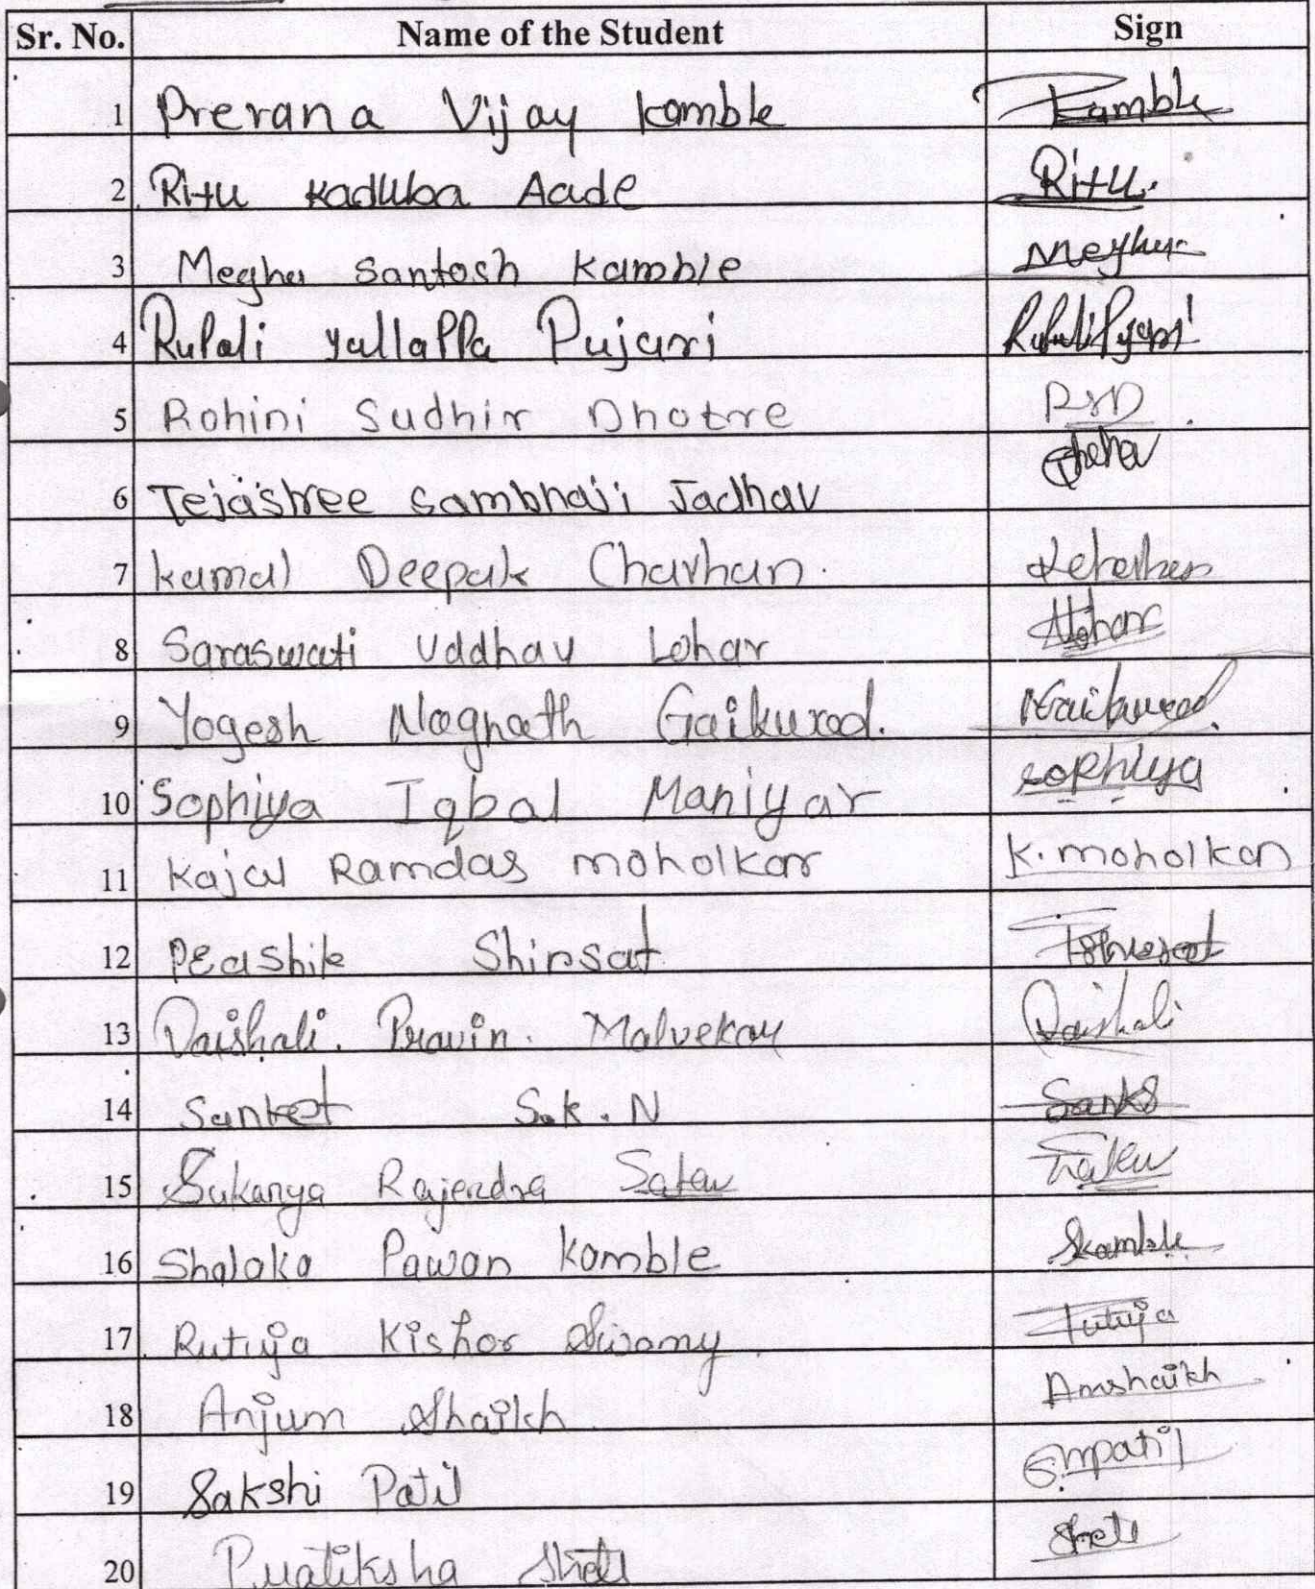 Sr. No. Name of the Student Sign
1 Prerana Vijay Kamble Kamble
2 Ritu Kaduba Aade Ritu.
3 Megha Santosh Kamble Megha
4 Rupali Yallappa Pujari RupaliPujari
5 Rohini Sudhir Dhotre RSD
6 Tejashree Sambhaji Jadhav
7 Kamal Deepak Chavhan.
8 Saraswati Uddhav Lohar Lohar
9 Yogesh Nagnath Gaikwad. Gaikwad.
10 Sophiya Iqbal Maniyar sophiya
11 Kajal Ramdas moholkar K. moholkar
12 Shirsat
13 Vaishali. Pravin. Malvekar Vaishali
14 Sanket S.K.N Sanks
15 Sukanya Rajendra
16 Shalaka Pawan Kamble Skamble
17 Rutuja Kishor Swamy Rutuja
18 Anjum Shaikh Amshaikh
19 Sakshi Patil Smpatil
20 Pratiksha